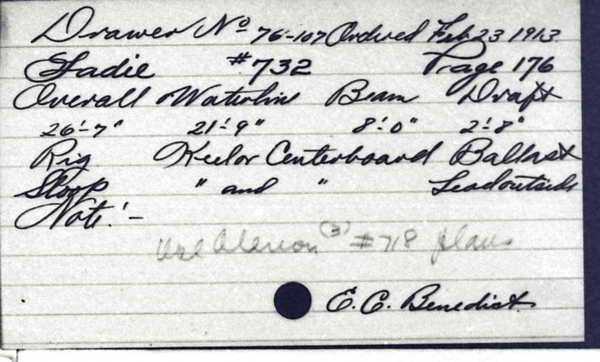 Drawer No 76-107 Ordered Feb 23 1913
Sadie #732 Page 176
Overall Waterline Beam Draft
26'-7" 21'-9" 8'-0" 2'-8"
Rig Keel or Centerboard Ballast
Sloop " and " Lead outside
Note:-
Use Alerion (3) #718 plans
E. C. Benedict